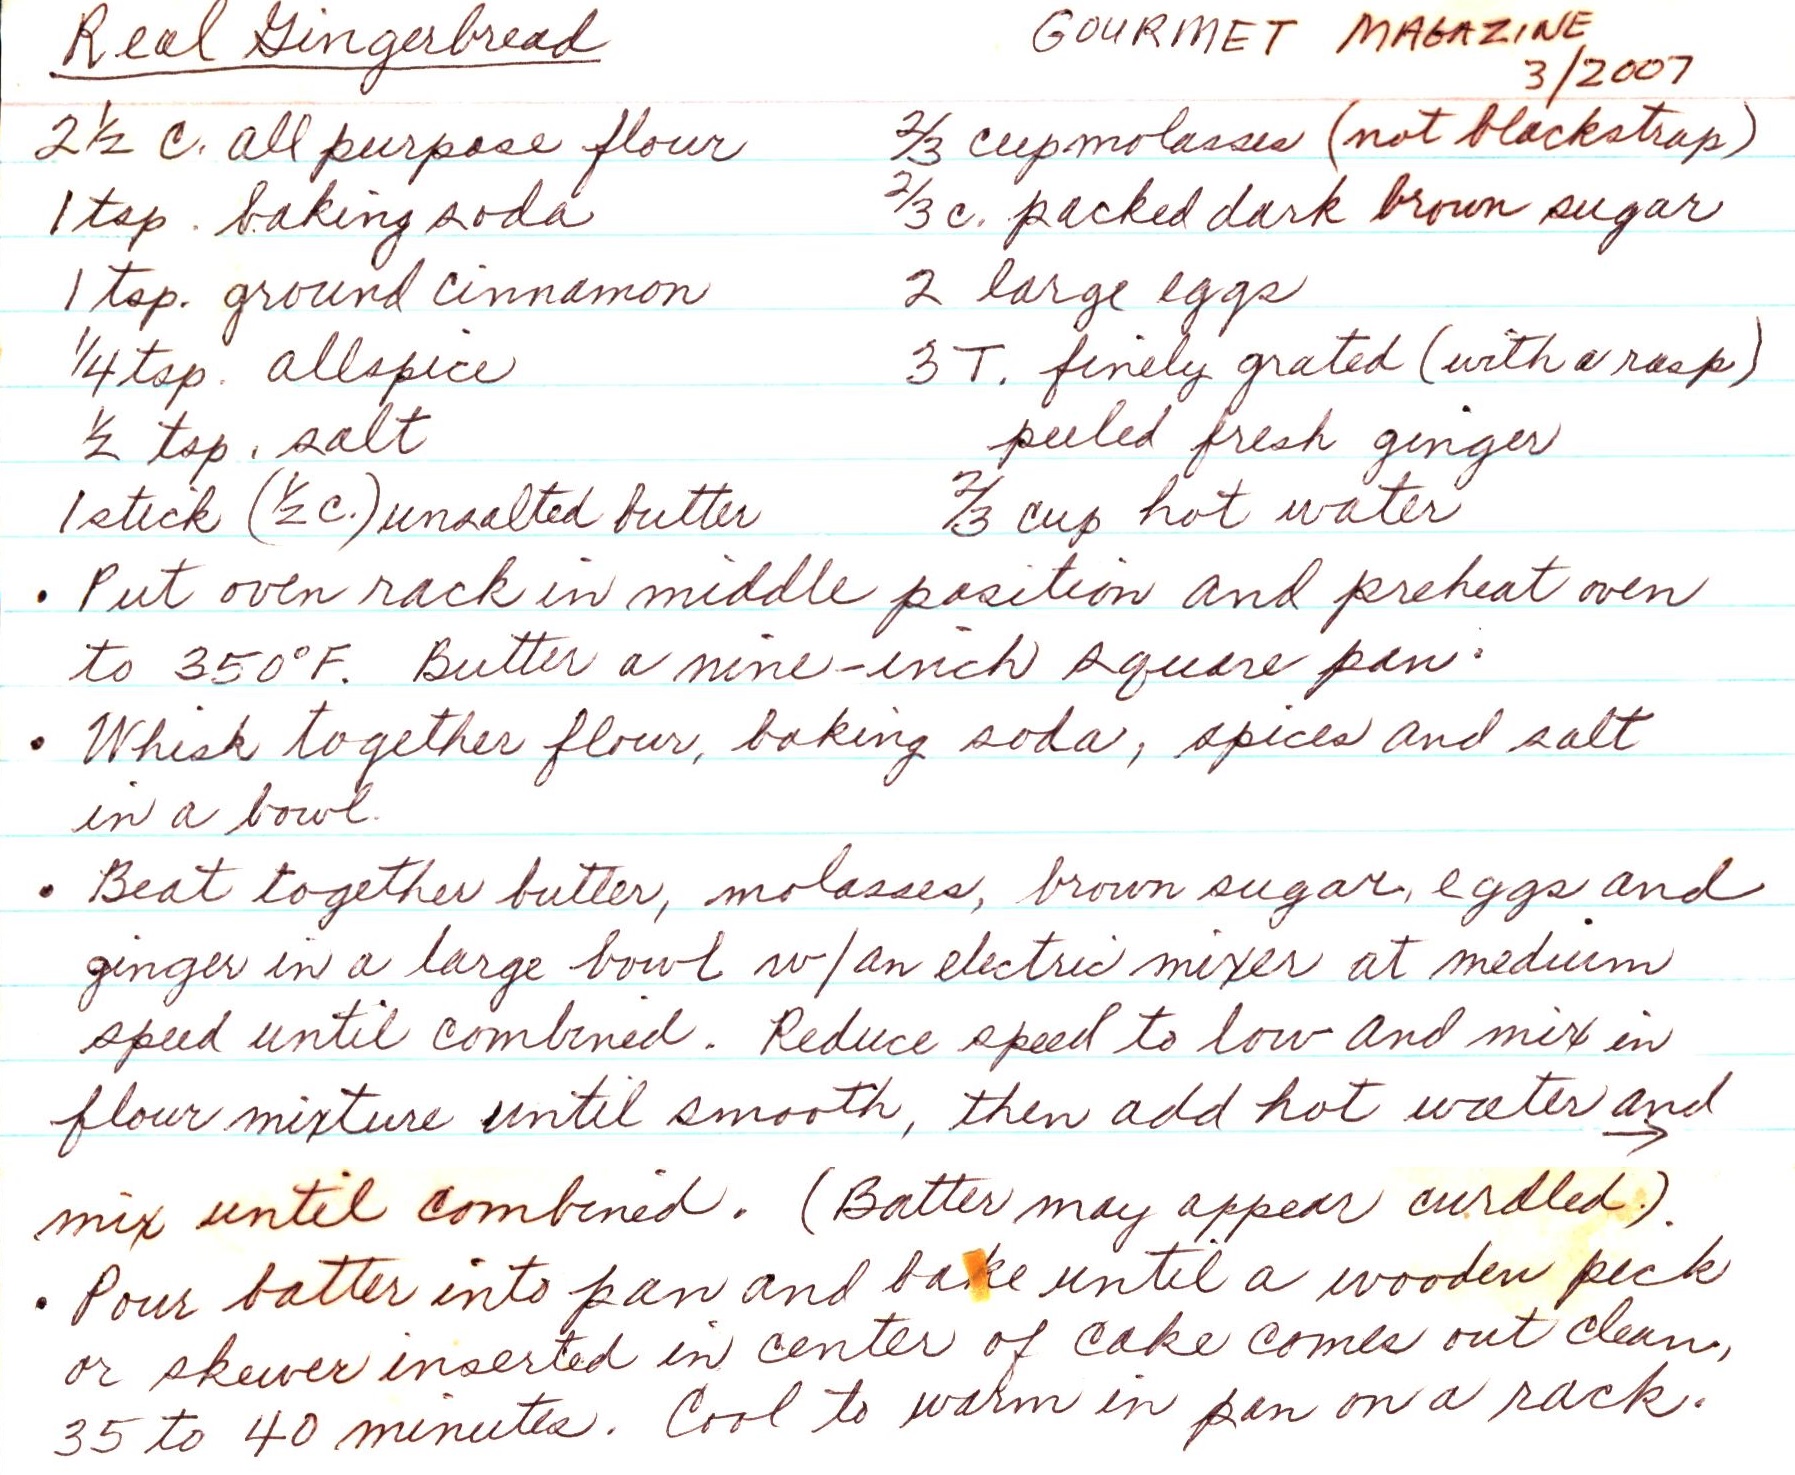 Real Gingerbread
GOURMET MAGAZINE
3/2007
2 1/2 c. all purpose flour
1 tsp. baking soda
1 tsp. ground cinnamon
1/4 tsp. allspice
1/2 tsp. salt
1 stick (1/2 c.) unsalted butter
2/3 cup molasses (not blackstrap)
2/3 c. packed dark brown sugar
2 large eggs
3 T. finely grated (with a rasp)
peeled fresh ginger
2/3 cup hot water
• Put oven rack in middle position and preheat oven
to 350°F. Butter a nine-inch square pan.
• Whisk together flour, baking soda, spices and salt
in a bowl.
• Beat together butter, molasses, brown sugar, eggs and
ginger in a large bowl w/an electric mixer at medium
speed until combined. Reduce speed to low and mix in
flour mixture until smooth, then add hot water and
→
mix until combined. (Batter may appear curdled.).
• Pour batter into pan and bake until a wooden pick
or skewer inserted in center of cake comes out clean,
35 to 40 minutes. Cool to warm in pan on a rack.